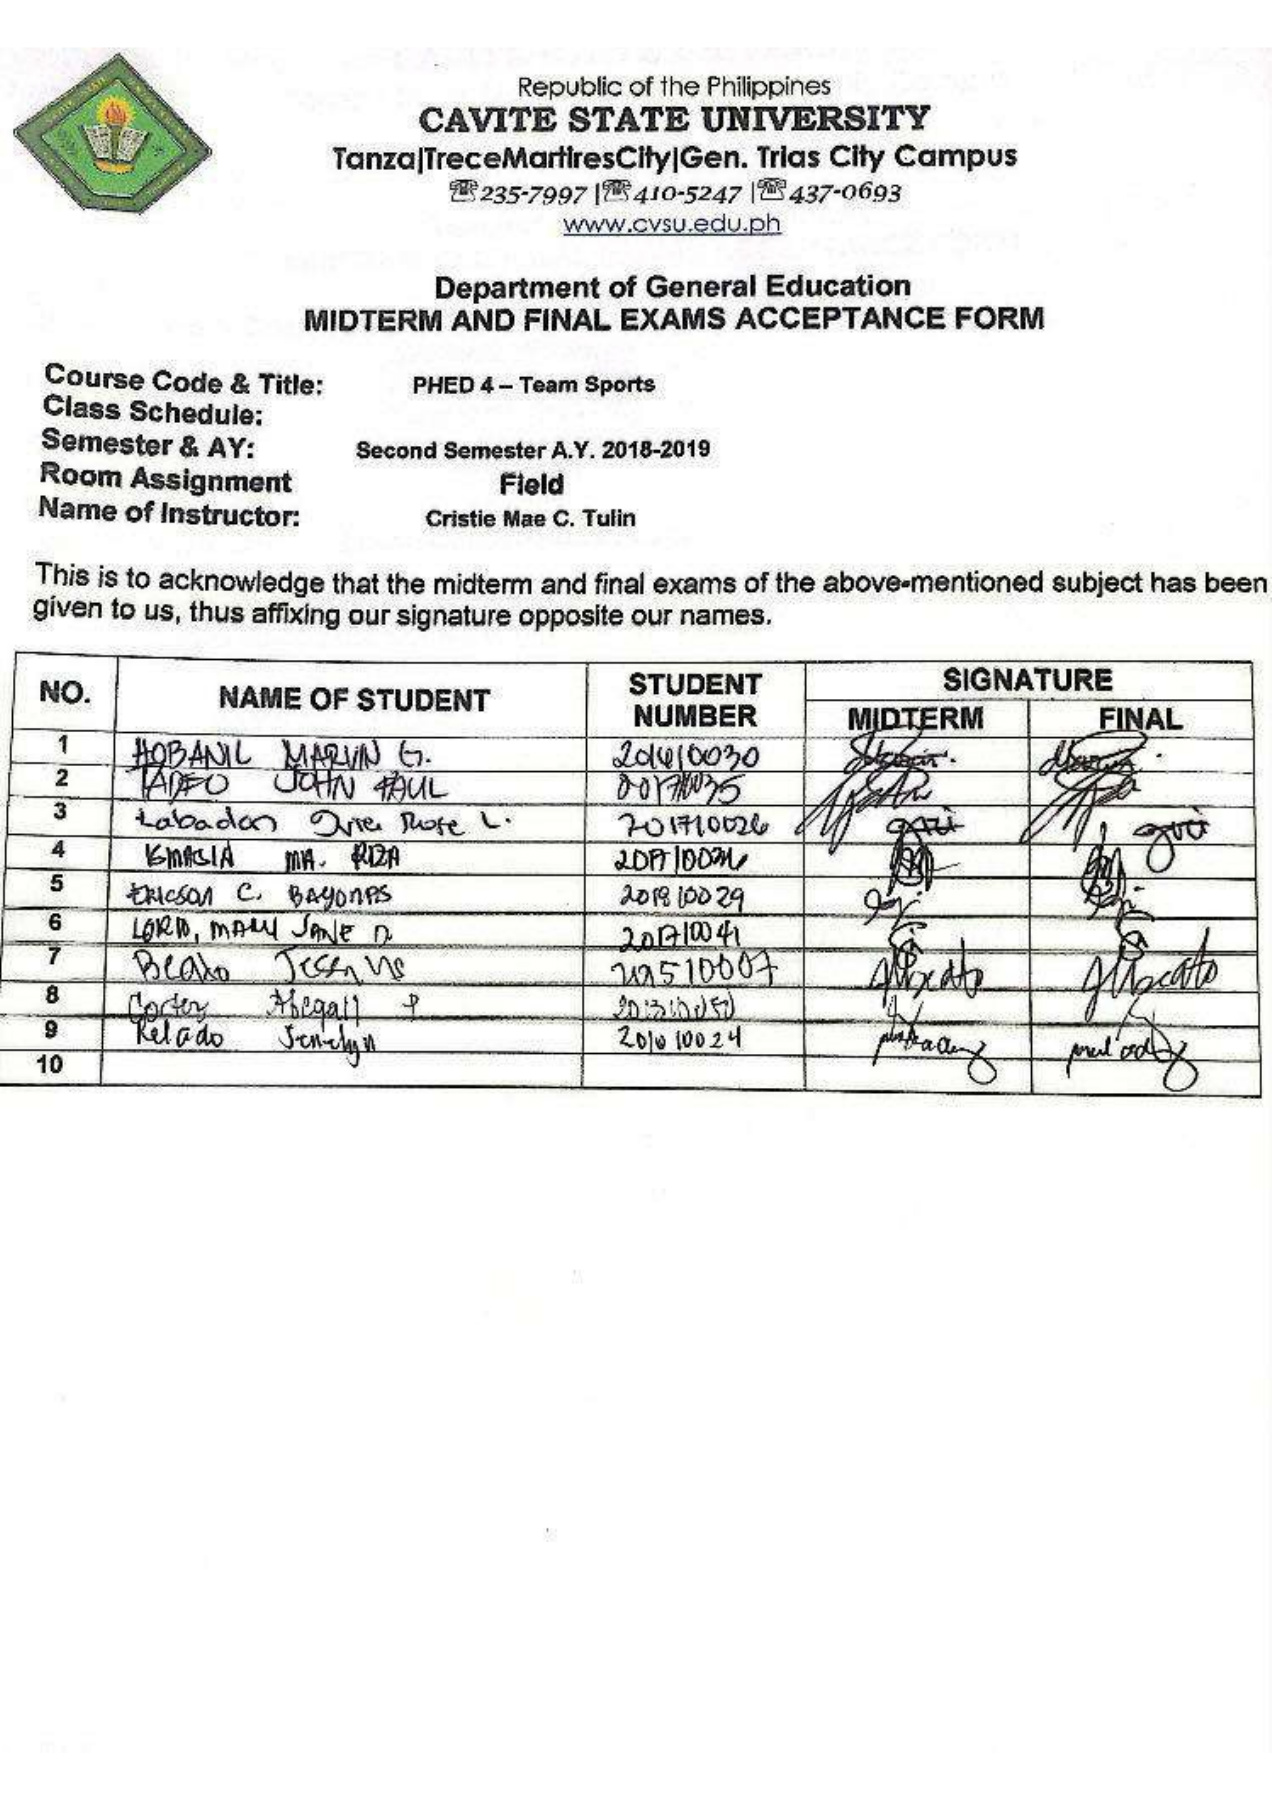 Republic of the Philippines
CAVITE STATE UNIVERSITY
Tanza|TreceMartiresCity|Gen. Trias City Campus
☎235-7997 |☎410-5247 |☎437-0693
www.cvsu.edu.ph
Department of General Education
MIDTERM AND FINAL EXAMS ACCEPTANCE FORM
Course Code & Title: PHED 4 – Team Sports
Class Schedule:
Semester & AY: Second Semester A.Y. 2018-2019
Room Assignment Field
Name of Instructor: Cristie Mae C. Tulin
This is to acknowledge that the midterm and final exams of the above-mentioned subject has been
given to us, thus affixing our signature opposite our names.
NO. NAME OF STUDENT STUDENT NUMBER SIGNATURE
MIDTERM FINAL
1 HOBANIL MARVIN G. 201610030
2 TADEO JOHN PAUL
3 Labadan Rose L. 201710026
4 MA. RIZA
5 ERICSON C. BAYONAS 201810029
6 MARY JANE 201710041
7
8 Cortez Abegail P
9 Relado Jenelyn 201610024
10